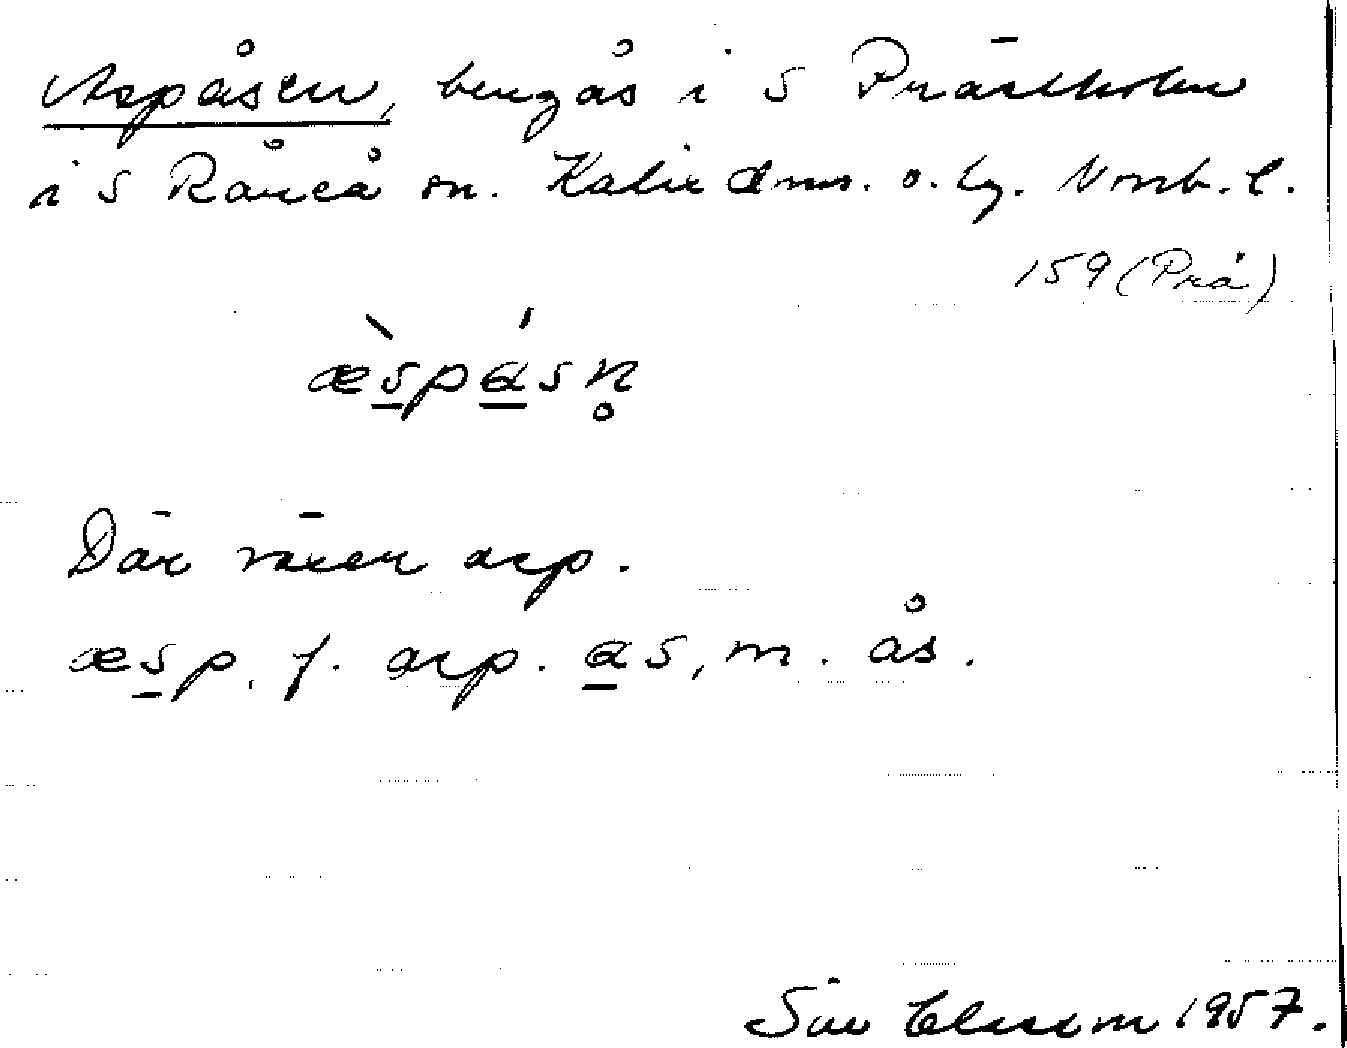 Aspåsen, bergås i S Prästholm
i S Råneå sn. Kalix dms. o. lg. Norrb. l.
159 (Prä)
æ̀spásn̥
Där växer asp.
æsp, f. asp. as, m. ås.
Siv 1957.